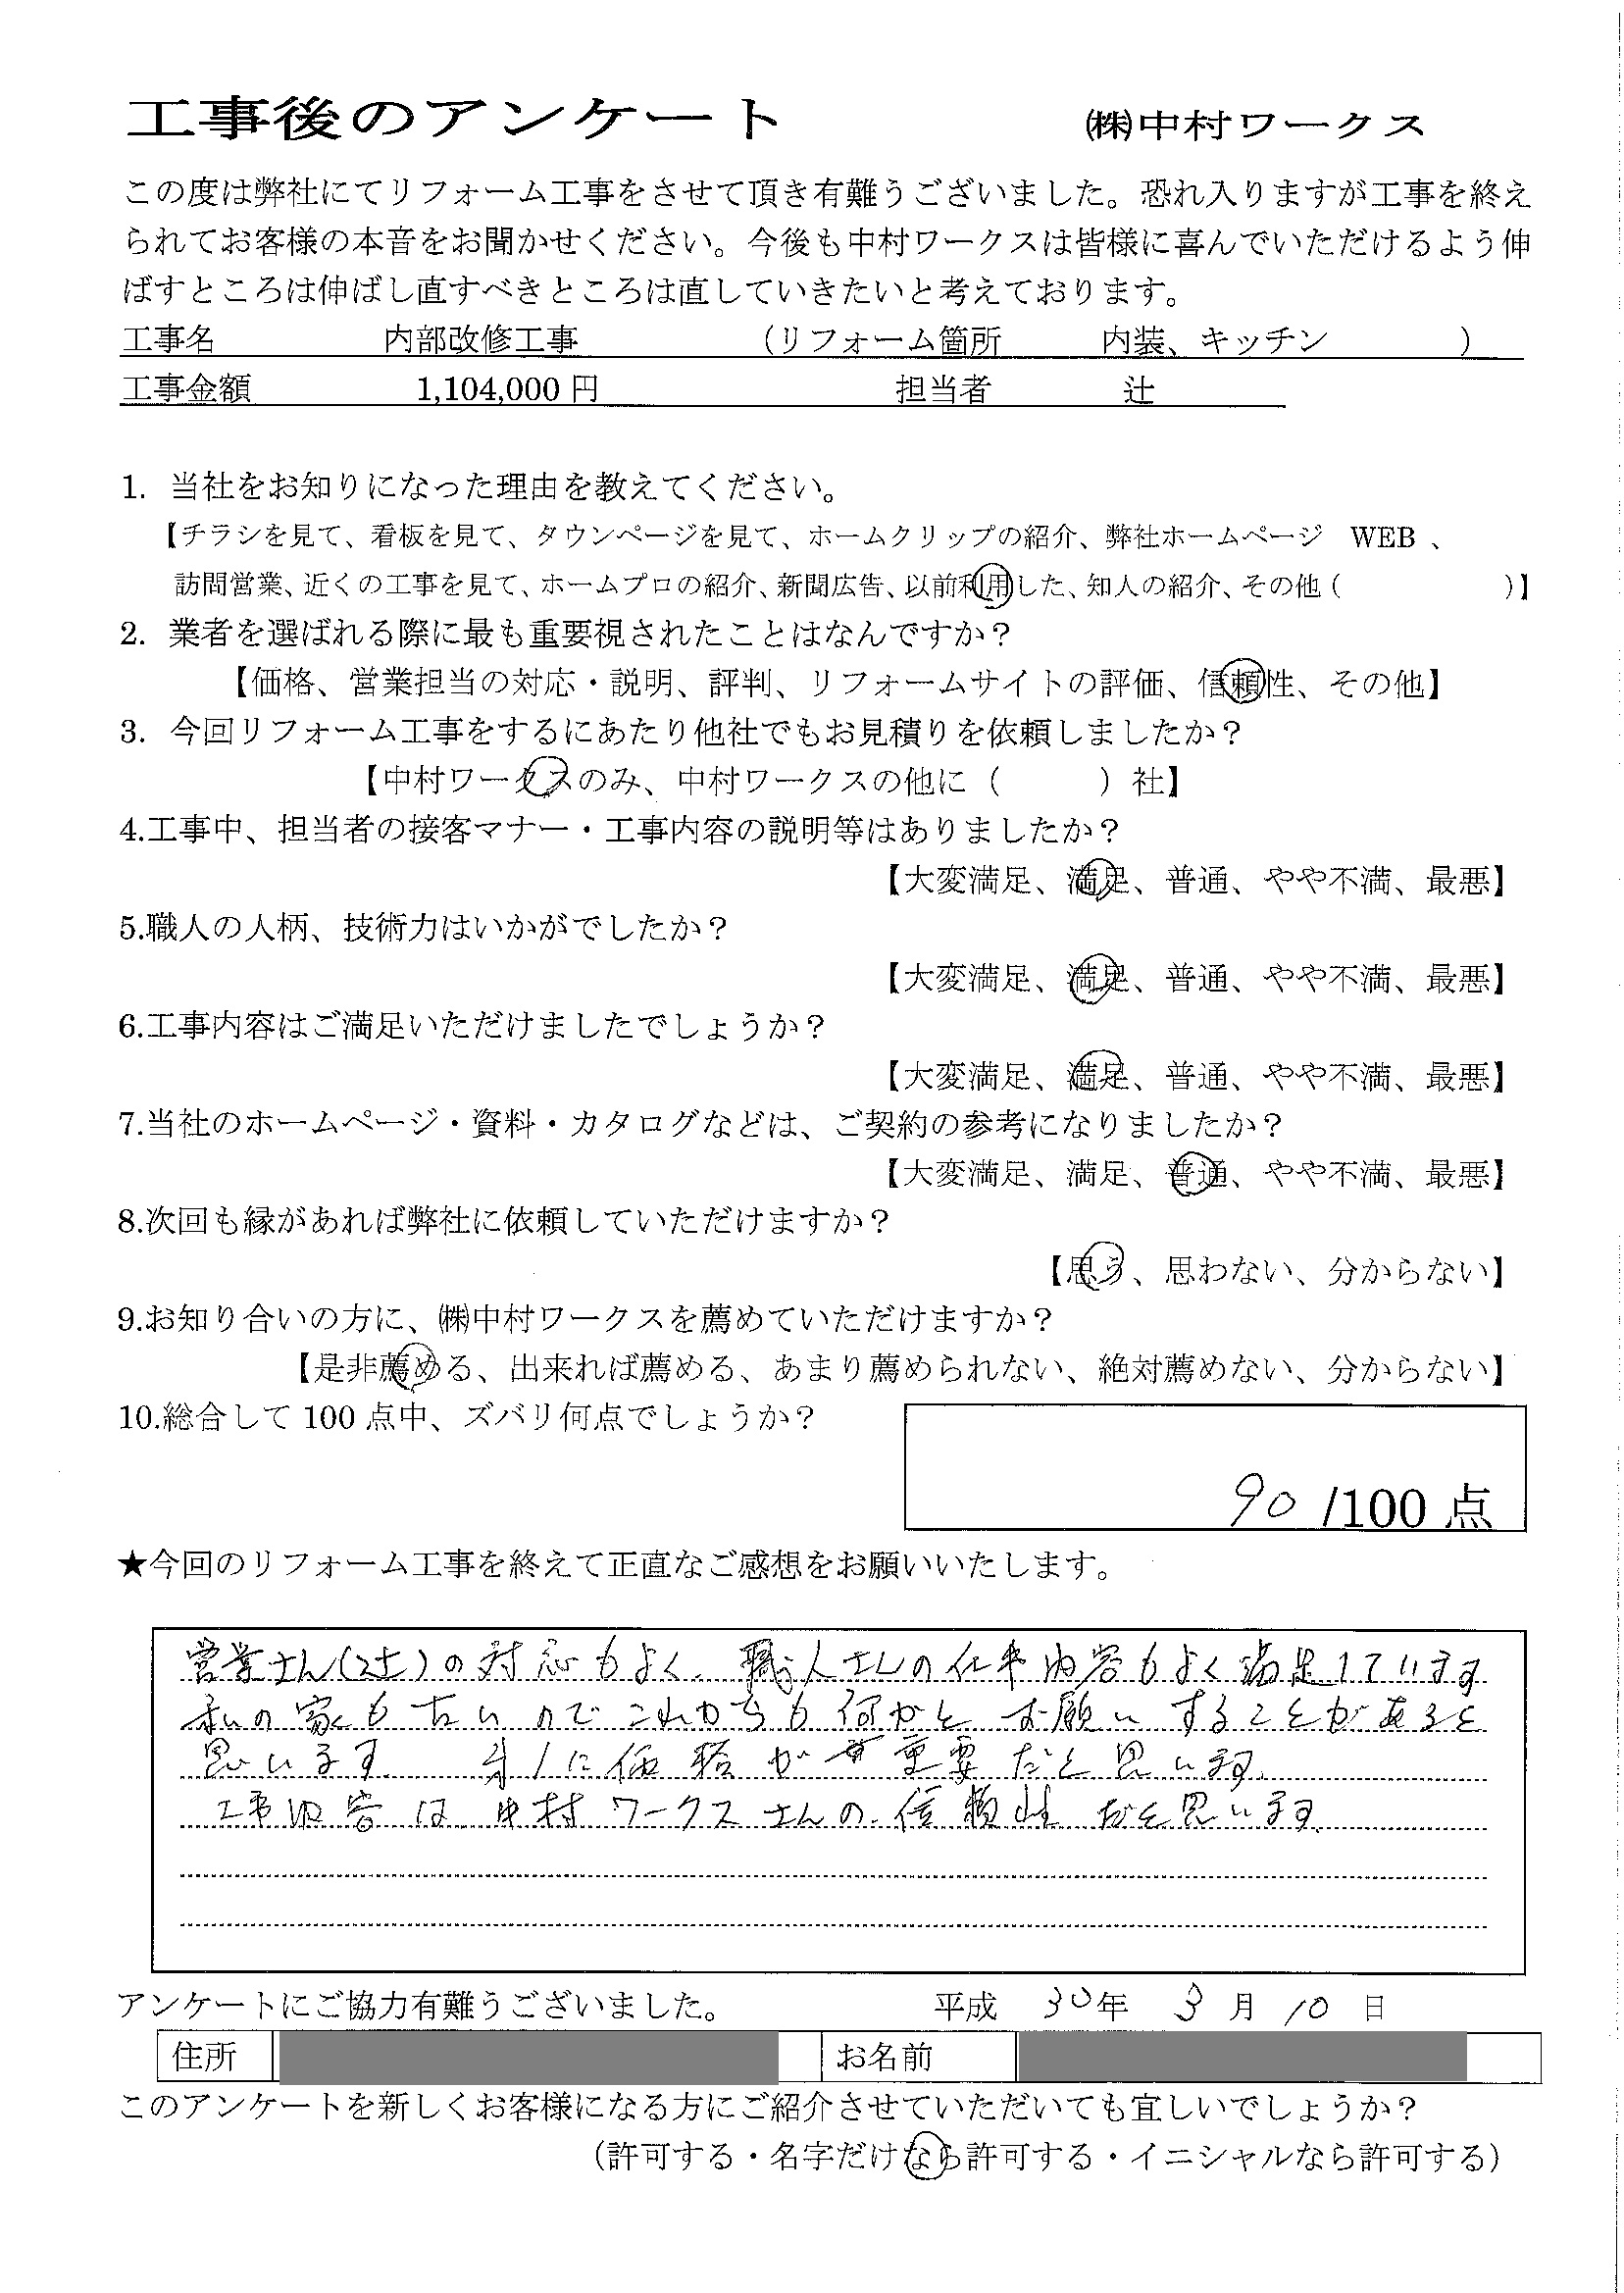 工事後のアンケート　㈱中村ワークス
この度は弊社にてリフォーム工事をさせて頂き有難うございました。恐れ入りますが工事を終え
られてお客様の本音をお聞かせください。今後も中村ワークスは皆様に喜んでいただけるよう伸
ばすところは伸ばし直すべきところは直していきたいと考えております。
工事名　内部改修工事　（リフォーム箇所　内装、キッチン　）
工事金額　1,104,000 円　担当者　辻
1. 当社をお知りになった理由を教えてください。
【チラシを見て、看板を見て、タウンページを見て、ホームクリップの紹介、弊社ホームページ　WEB 、
訪問営業、近くの工事を見て、ホームプロの紹介、新聞広告、以前利用した、知人の紹介、その他（　）】
2. 業者を選ばれる際に最も重要視されたことはなんですか？
【価格、営業担当の対応・説明、評判、リフォームサイトの評価、信頼性、その他】
3. 今回リフォーム工事をするにあたり他社でもお見積りを依頼しましたか？
【中村ワークスのみ、中村ワークスの他に（　）社】
4.工事中、担当者の接客マナー・工事内容の説明等はありましたか？
【大変満足、満足、普通、やや不満、最悪】
5.職人の人柄、技術力はいかがでしたか？
【大変満足、満足、普通、やや不満、最悪】
6.工事内容はご満足いただけましたでしょうか？
【大変満足、満足、普通、やや不満、最悪】
7.当社のホームページ・資料・カタログなどは、ご契約の参考になりましたか？
【大変満足、満足、普通、やや不満、最悪】
8.次回も縁があれば弊社に依頼していただけますか？
【思う、思わない、分からない】
9.お知り合いの方に、㈱中村ワークスを薦めていただけますか？
【是非薦める、出来れば薦める、あまり薦められない、絶対薦めない、分からない】
10.総合して 100 点中、ズバリ何点でしょうか？
90 /100 点
★今回のリフォーム工事を終えて正直なご感想をお願いいたします。
営業さん(辻)の対応もよく、職人さんの仕事内容もよく満足しています
私の家も古いのでこれからも何かとお願いすることがあると
思います　才1に価格が重要だと思います。
工事内容は中村ワークスさんの信頼性だと思います。
アンケートにご協力有難うございました。　平成　30年　3月　10日
住所　お名前
このアンケートを新しくお客様になる方にご紹介させていただいても宜しいでしょうか？
（許可する・名字だけなら許可する・イニシャルなら許可する）